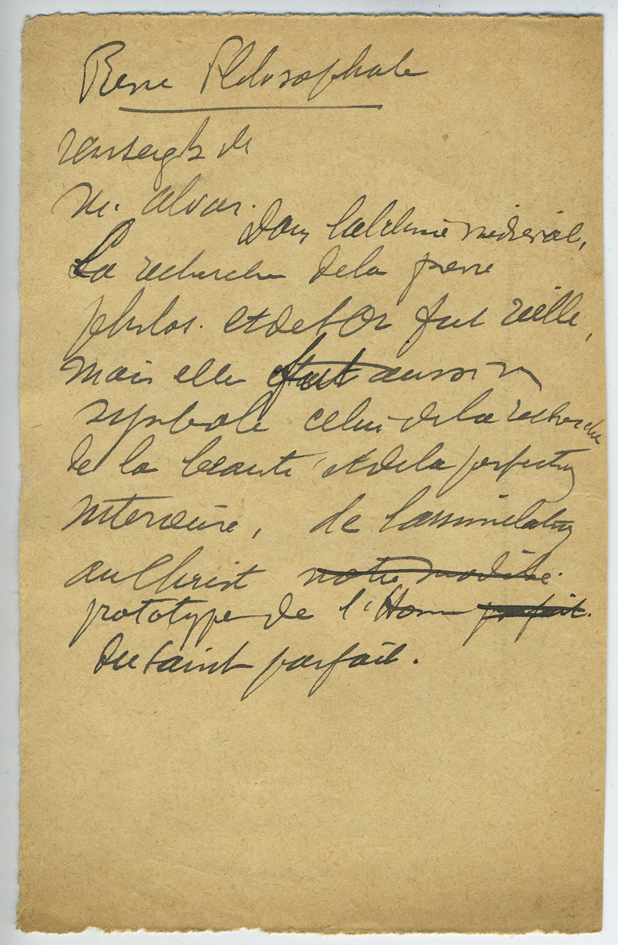 Pierre Philosophale
renseigts de
M. Alvar.
Dans l'alchimie médiéval,
La recherche de la pierre
philos. et de l'Or fut réelle,
mais elle fut aussi
symbole celui de la recherche
de la beauté et de la perfection
intérieure, de l'assimilation
au Christ notre modèle.
prototype de l'Homme parfait.
du Saint parfait.